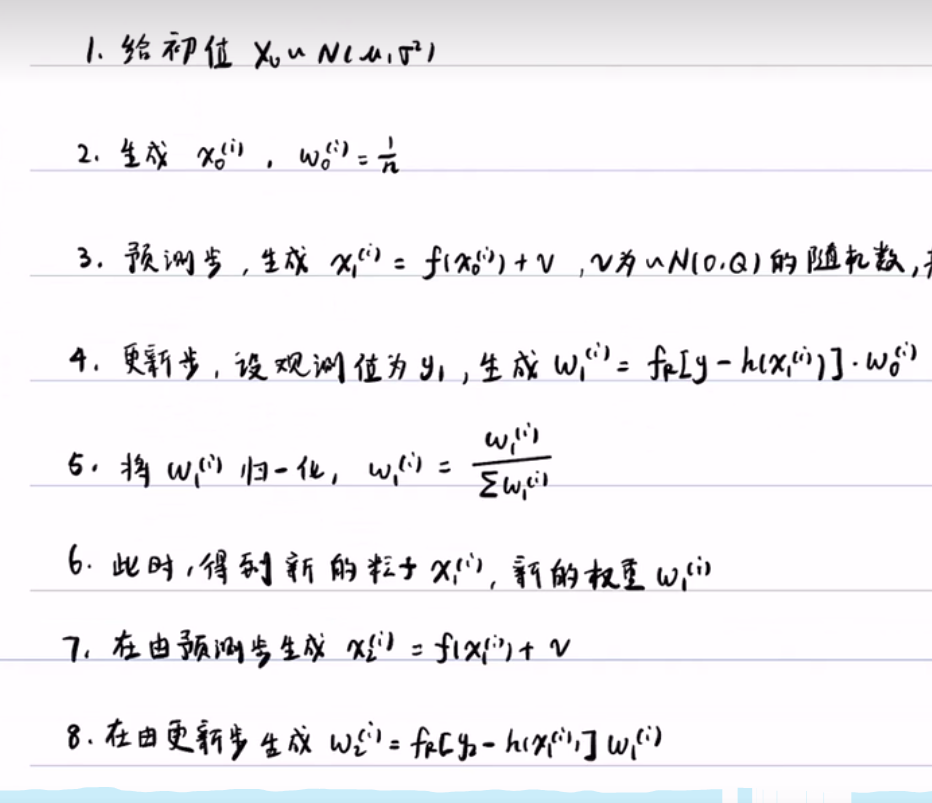 1. 给初值 X₀ ~ N(μ, σ²)
2. 生成 x₀⁽ⁱ⁾, w₀⁽ⁱ⁾ = 1/n
3. 预测步, 生成 x₁⁽ⁱ⁾ = f(x₀⁽ⁱ⁾) + v, v为 ~ N(0, Q) 的随机数,
4. 更新步, 设观测值为 y₁, 生成 w₁⁽ⁱ⁾ = f_R[y - h(x₁⁽ⁱ⁾)]·w₀⁽ⁱ⁾
5. 将 w₁⁽ⁱ⁾ 归一化, w₁⁽ⁱ⁾ = w₁⁽ⁱ⁾ / Σw₁⁽ⁱ⁾
6. 此时, 得到新的粒子 x₁⁽ⁱ⁾, 新的权重 w₁⁽ⁱ⁾
7. 在由预测步生成 x₂⁽ⁱ⁾ = f(x₁⁽ⁱ⁾) + v
8. 在由更新步生成 w₂⁽ⁱ⁾ = f_R[y₂ - h(x₁⁽ⁱ⁾)] w₁⁽ⁱ⁾